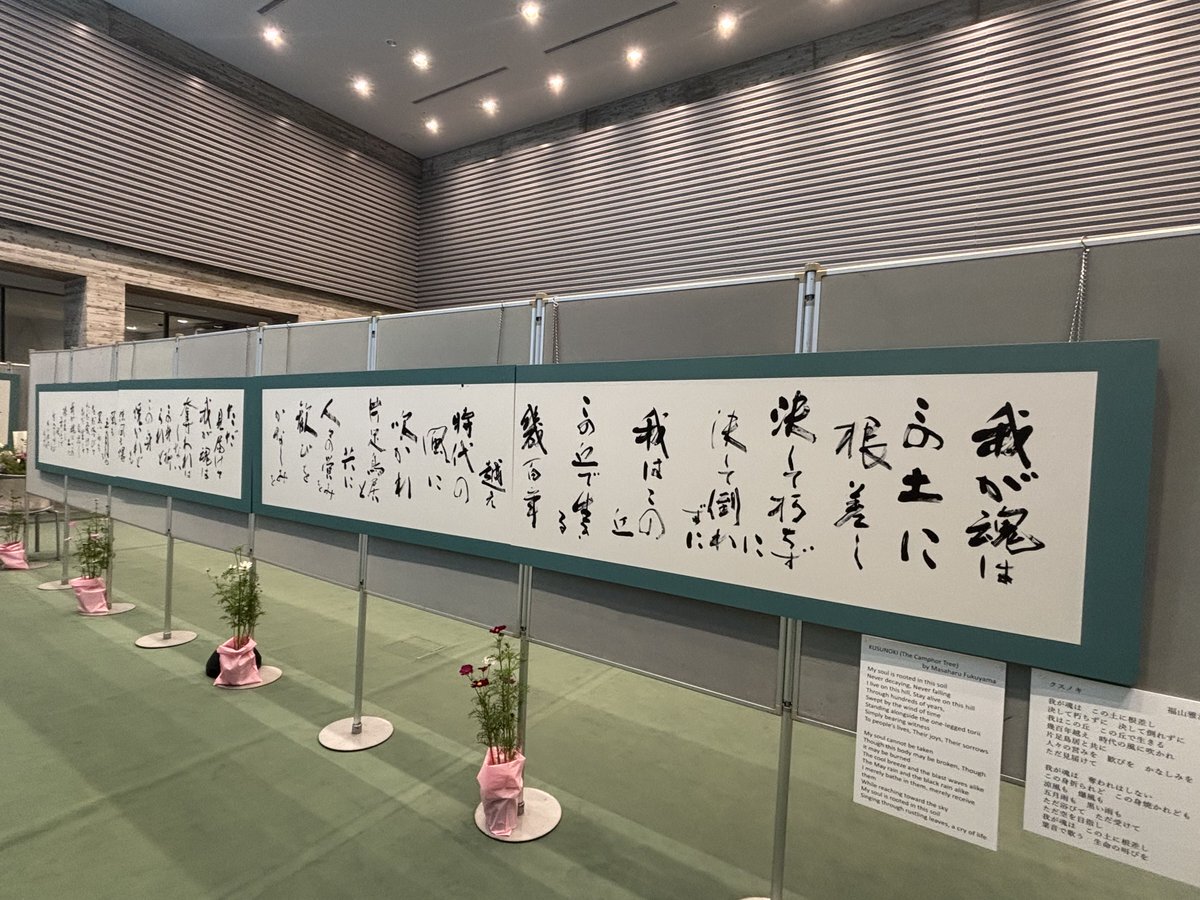 我が魂は
この土に
根差し
決して朽ちず
に
決して倒れ
ずに
我はこの
丘
この丘で生き
る
幾百年
越え
時代の
風に
吹かれ
片足鳥居と
共に
人々の営みを
歓びを
かなしみを
ただ
見届けて
我が魂は
奪われは
しない
この身折
られど
この身
焼かれど
KUSUNOKI (The Camphor Tree)
by Masaharu Fukuyama
My soul is rooted in this soil
Never decaying, Never falling
I live on this hill, Stay alive on this hill
Through hundreds of years,
Swept by the wind of time
Standing alongside the one-legged torii
Simply bearing witness
To people's lives, Their joys, Their sorrows
My soul cannot be taken
Though this body may be broken, Though
it may be burned
The cool breeze and the blast waves alike
The May rain and the black rain alike
I merely bathe in them, merely receive
them.
While reaching toward the sky
My soul is rooted in this soil
Singing through rustling leaves, a cry of life
クスノキ
福山雅
我が魂は この土に根差し
決して朽ちずに 決して倒れずに
我はこの丘 この丘で生きる
幾百年越え 時代の風に吹かれ
片足鳥居と共に
人々の営みを 歓びを かなしみを
ただ見届けて
我が魂は 奪われはしない
この身折られど この身焼かれども
涼風も 爆風も
五月雨も 黒い雨も
ただ浴びて ただ受けて
ただ空を目指し
我が魂は この土に根差し
葉音で歌う 生命の叫びを